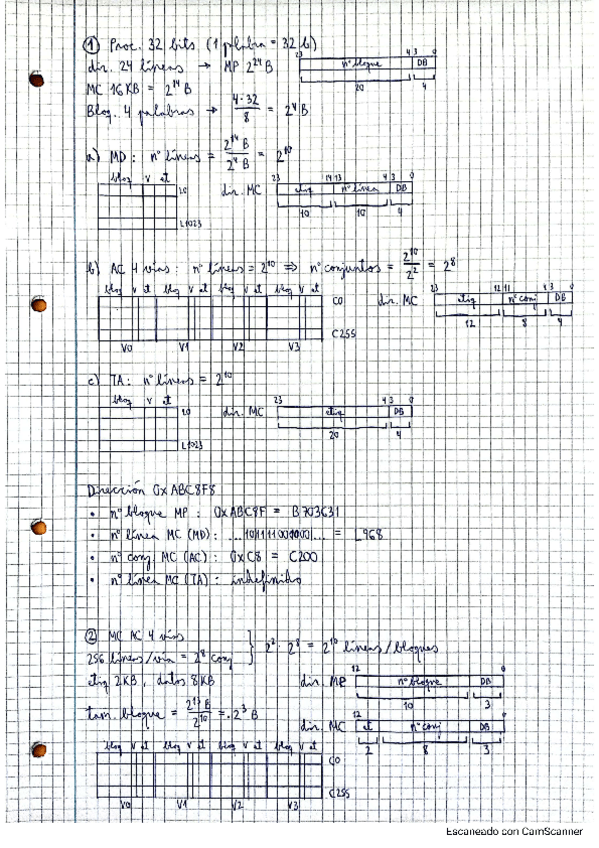 ① Proc. 32 bits (1 palabra = 32 b)
dir. 24 líneas → MP 2²⁴ B
23 4 3 0
nº bloque DB
20 4
MC 16 KB = 2¹⁴ B
Bloq. 4 palabras → 4·32 / 8 = 2⁴ B
a) MD: nº líneas = 2¹⁴ B / 2⁴ B = 2¹⁰
bloq v et
L0
L1023
dir. MC
23 14 13 4 3 0
etiq nº línea DB
10 10 4
b) AC 4 vías: nº líneas = 2¹⁰ ⇒ nº conjuntos = 2¹⁰ / 2² = 2⁸
bloq v et bloq v et bloq v et bloq v et
C0
C255
V0 V1 V2 V3
dir. MC
23 12 11 4 3 0
etiq nº conj DB
12 8 4
c) TA: nº líneas = 2¹⁰
bloq v et
L0
L1023
dir. MC
23 4 3 0
etiq DB
20 4
Dirección 0xABC8F8
• nº bloque MP: 0xABC8F = B703631
• nº línea MC (MD): = L968
• nº conj MC (AC): 0xC8 = C200
• nº línea MC (TA): indefinido
② MC AC 4 vías
256 líneas/vía = 2⁸ conj
} 2² · 2⁸ = 2¹⁰ líneas/bloques
etiq 2KB, datos 8KB
tam. bloque = 2¹³ B / 2¹⁰ = 2³ B
dir. MP
12 0
nº bloque DB
10 3
dir. MC
12 0
et nº conj DB
2 8 3
bloq v et bloq v et bloq v et bloq v et
C0
C255
V0 V1 V2 V3
Escaneado con CamScanner